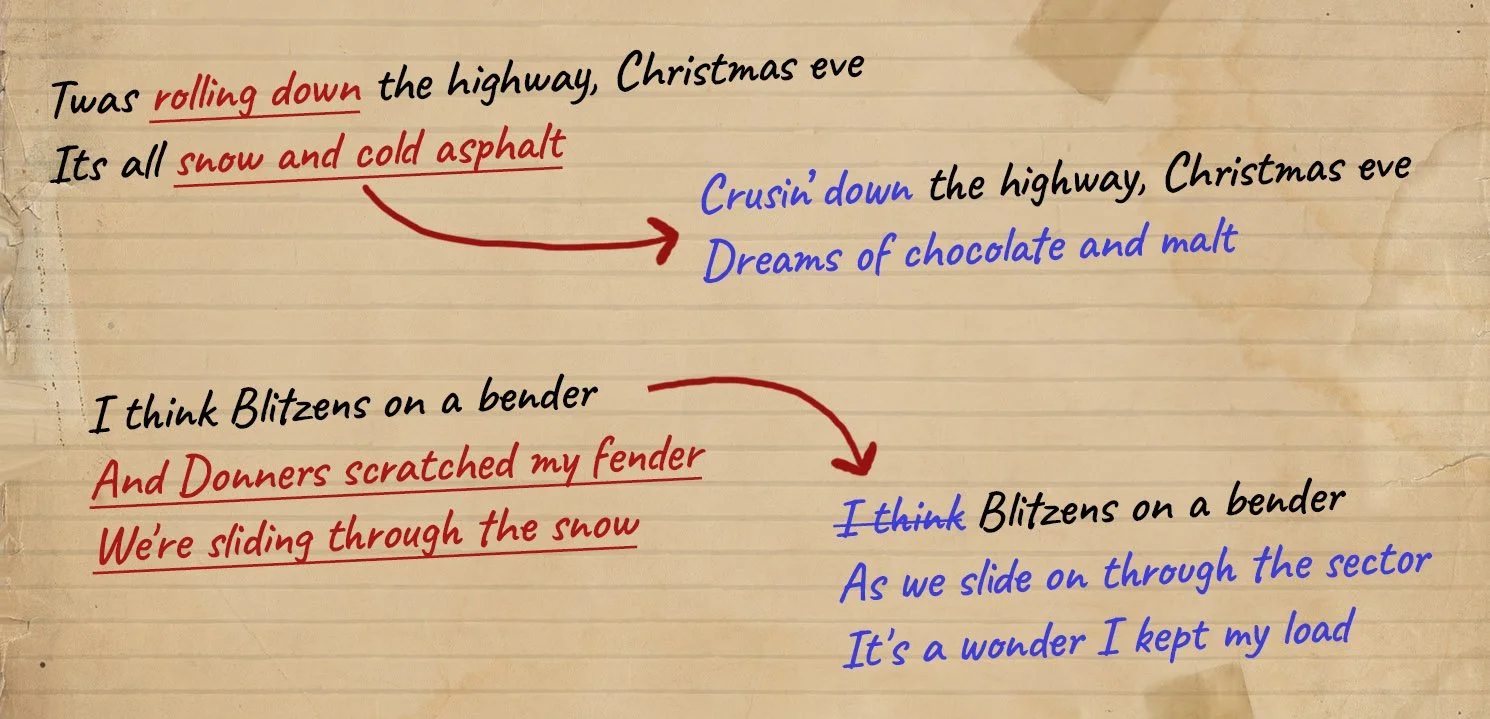 Twas rolling down the highway, Christmas eve
Its all snow and cold asphalt
Crusin' down the highway, Christmas eve
Dreams of chocolate and malt
I think Blitzens on a bender
And Donners scratched my fender
We're sliding through the snow
I think Blitzens on a bender
As we slide on through the sector
It's a wonder I kept my load